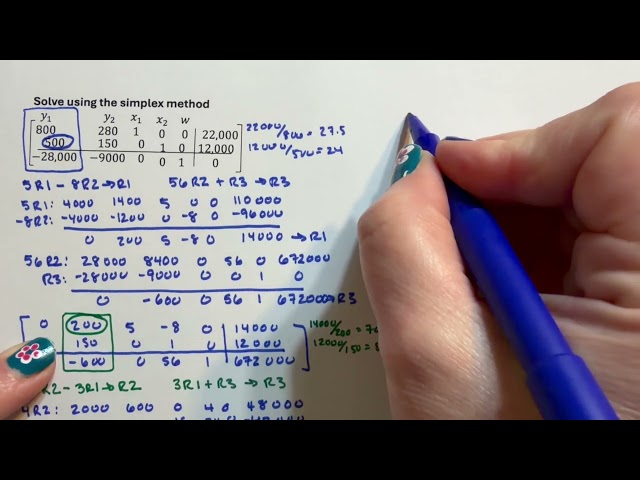 Solve using the simplex method
y₁ y₂ x₁ x₂ w
800 280 1 0 0 22,000 22000/800 = 27.5
500 150 0 1 0 12,000 12000/500 = 24
−28,000 −9000 0 0 1 0
5R1 − 8R2 → R1 56R2 + R3 → R3
5R1: 4000 1400 5 0 0 110000
−8R2: −4000 −1200 0 −8 0 −96000
0 200 5 −8 0 14000 → R1
56R2: 28000 8400 0 56 0 672000
R3: −28000 −9000 0 0 1 0
0 −600 0 56 1 672000 → R3
0 200 5 −8 0 14000 14000/200 =
150 0 1 0 12000 12000/150 =
−600 0 56 1 672000
R2 − 3R1 → R2 3R1 + R3 → R3
4R2: 2000 600 0 4 0 48000